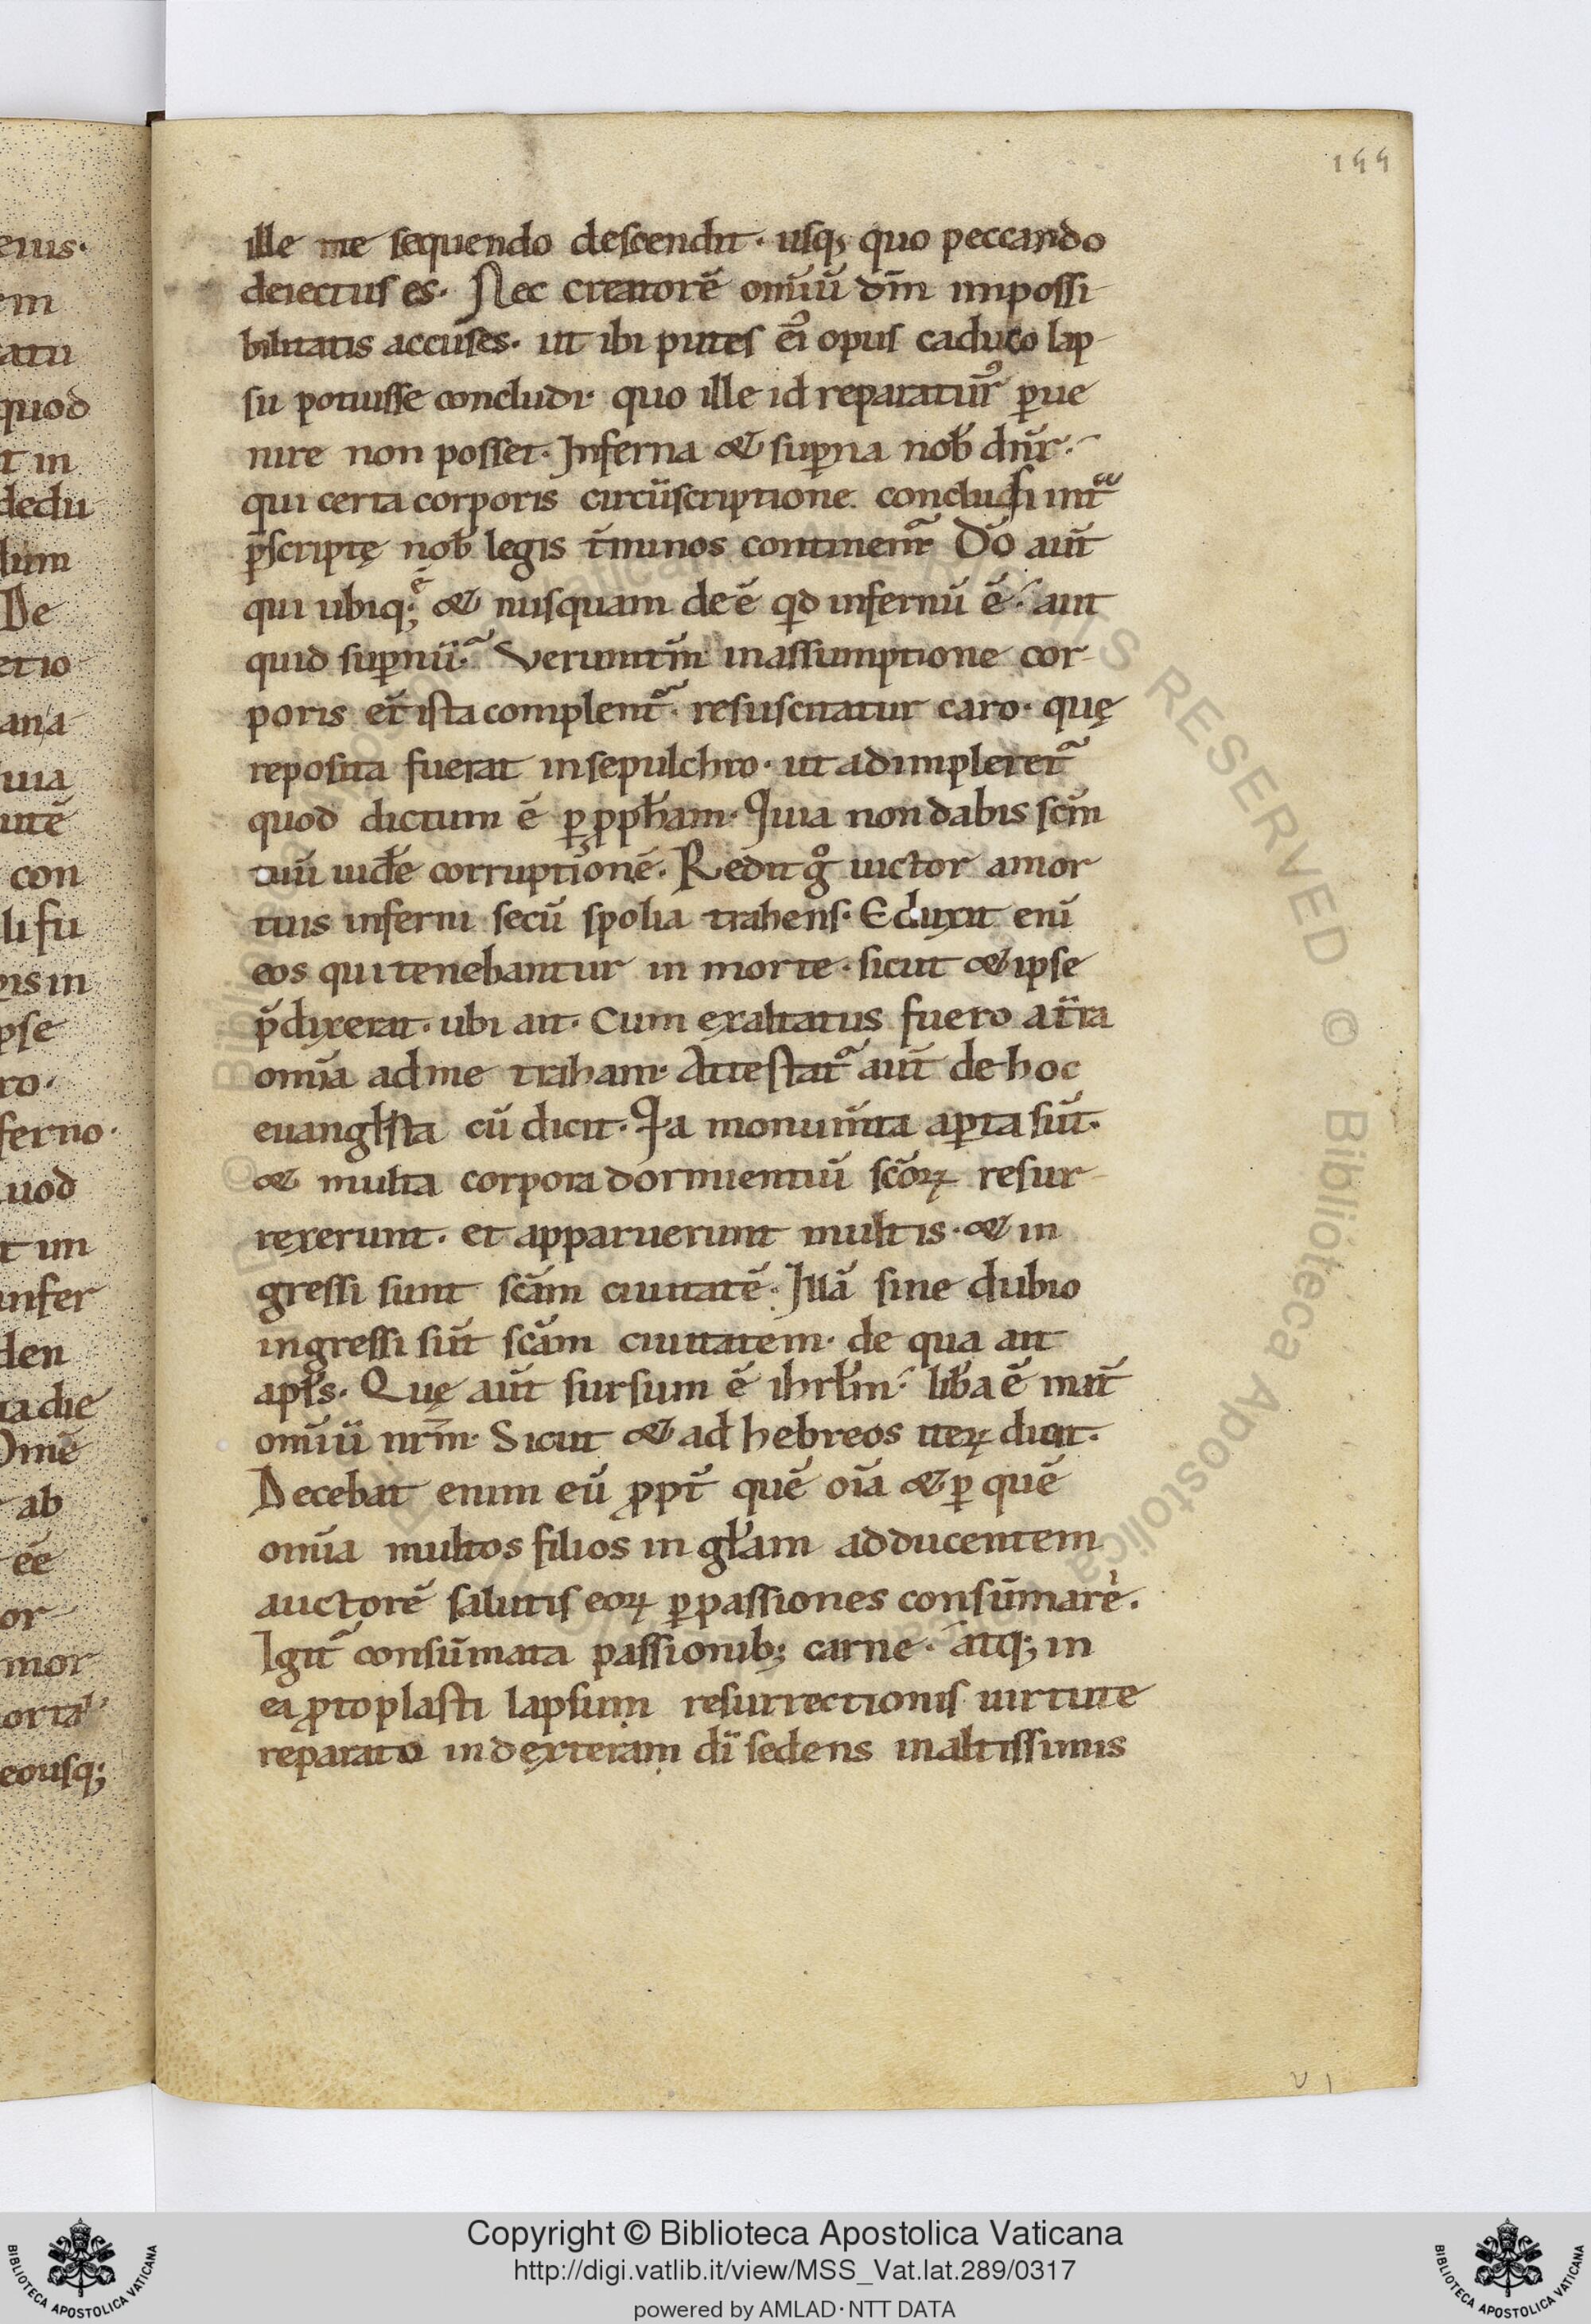 144
ille me sequendo descendit· usq; quo peccando
deiectus es· Nec creatorē omīū dm̄ impossi-
bilitatis accuses· ut ibi putes ei᾽ opus caduco lap-
su potuisse concludi· quo ille id reparatur᾽ ꝑue
nire non posset· Inferna & suꝑna nob̄ dn̄r·
qui certa corporis circūscriptione concludi int᷑
p̄scriptę nob̄ legis t̄minos continem᷑ Do᷑ aut̄
qui ubiq; ē & nusquam deē qd̄ infernū ē· aut
quid suꝑnū· Verumtm̄ in assumptione cor-
poris et̄ ista complent᷑· resuscitatur caro· quę
reposita fuerat in sepulchro· ut adimpleret᷑
quod dictum ē ꝑ ꝓph̄am· Quia non dabis scm̄
tuū uid̄e corruptionē· Redit gͦ uictor a mor
tuis inferni secū spolia trahens· Eduxit enī
eos qui tenebantur in morte· sicut & ipse
p̄dixerat· ubi ait· Cum exaltatus fuero a t̄ra
omīa ad me traham· Attestat᷑ aut̄ de hoc
euangl̄ista cū dicit· Qa monum̄ta aꝑta sūt·
& multa corpora dormientiū scōꝝ resur-
rexerunt· et apparuerunt multis· & in
gressi sunt scām ciuitatē· Illā sine dubio
ingressi sūt scām ciuitatem· de qua ait
apl̄s· Quę aut̄ sursum ē ihrl̄m· lib̄a ē mat̄
omīū nr̄m· Sicut & ad hebreos iteꝝ dicit·
Decebat enim eū ꝓpt̄ quē oīa & ꝑ quē
omīa multos filios in gl̄am adducentem
auctorē salutis eoꝝ ꝑ passiones consūmare·
Igit᷑ consūmata passionib; carne· atq; in
ea ꝓtoplasti lapsum resurrectionis uirtute
reparato in dexteram dī sedens in altissimis
VI
eius·
em
atu
quod
t in
dedu
lum
De
etio
ana
uia
utē
con
li fu
is in
pse
ro·
ferno·
uod
t im
infer
den
ia die
Omē
ab
ēē
or
mor
orta
eousq;
Copyright © Biblioteca Apostolica Vaticana
http://digi.vatlib.it/view/MSS_Vat.lat.289/0317
powered by AMLAD·NTT DATA
BIBLIOTECA APOSTOLICA VATICANA
BIBLIOTECA APOSTOLICA VATICANA